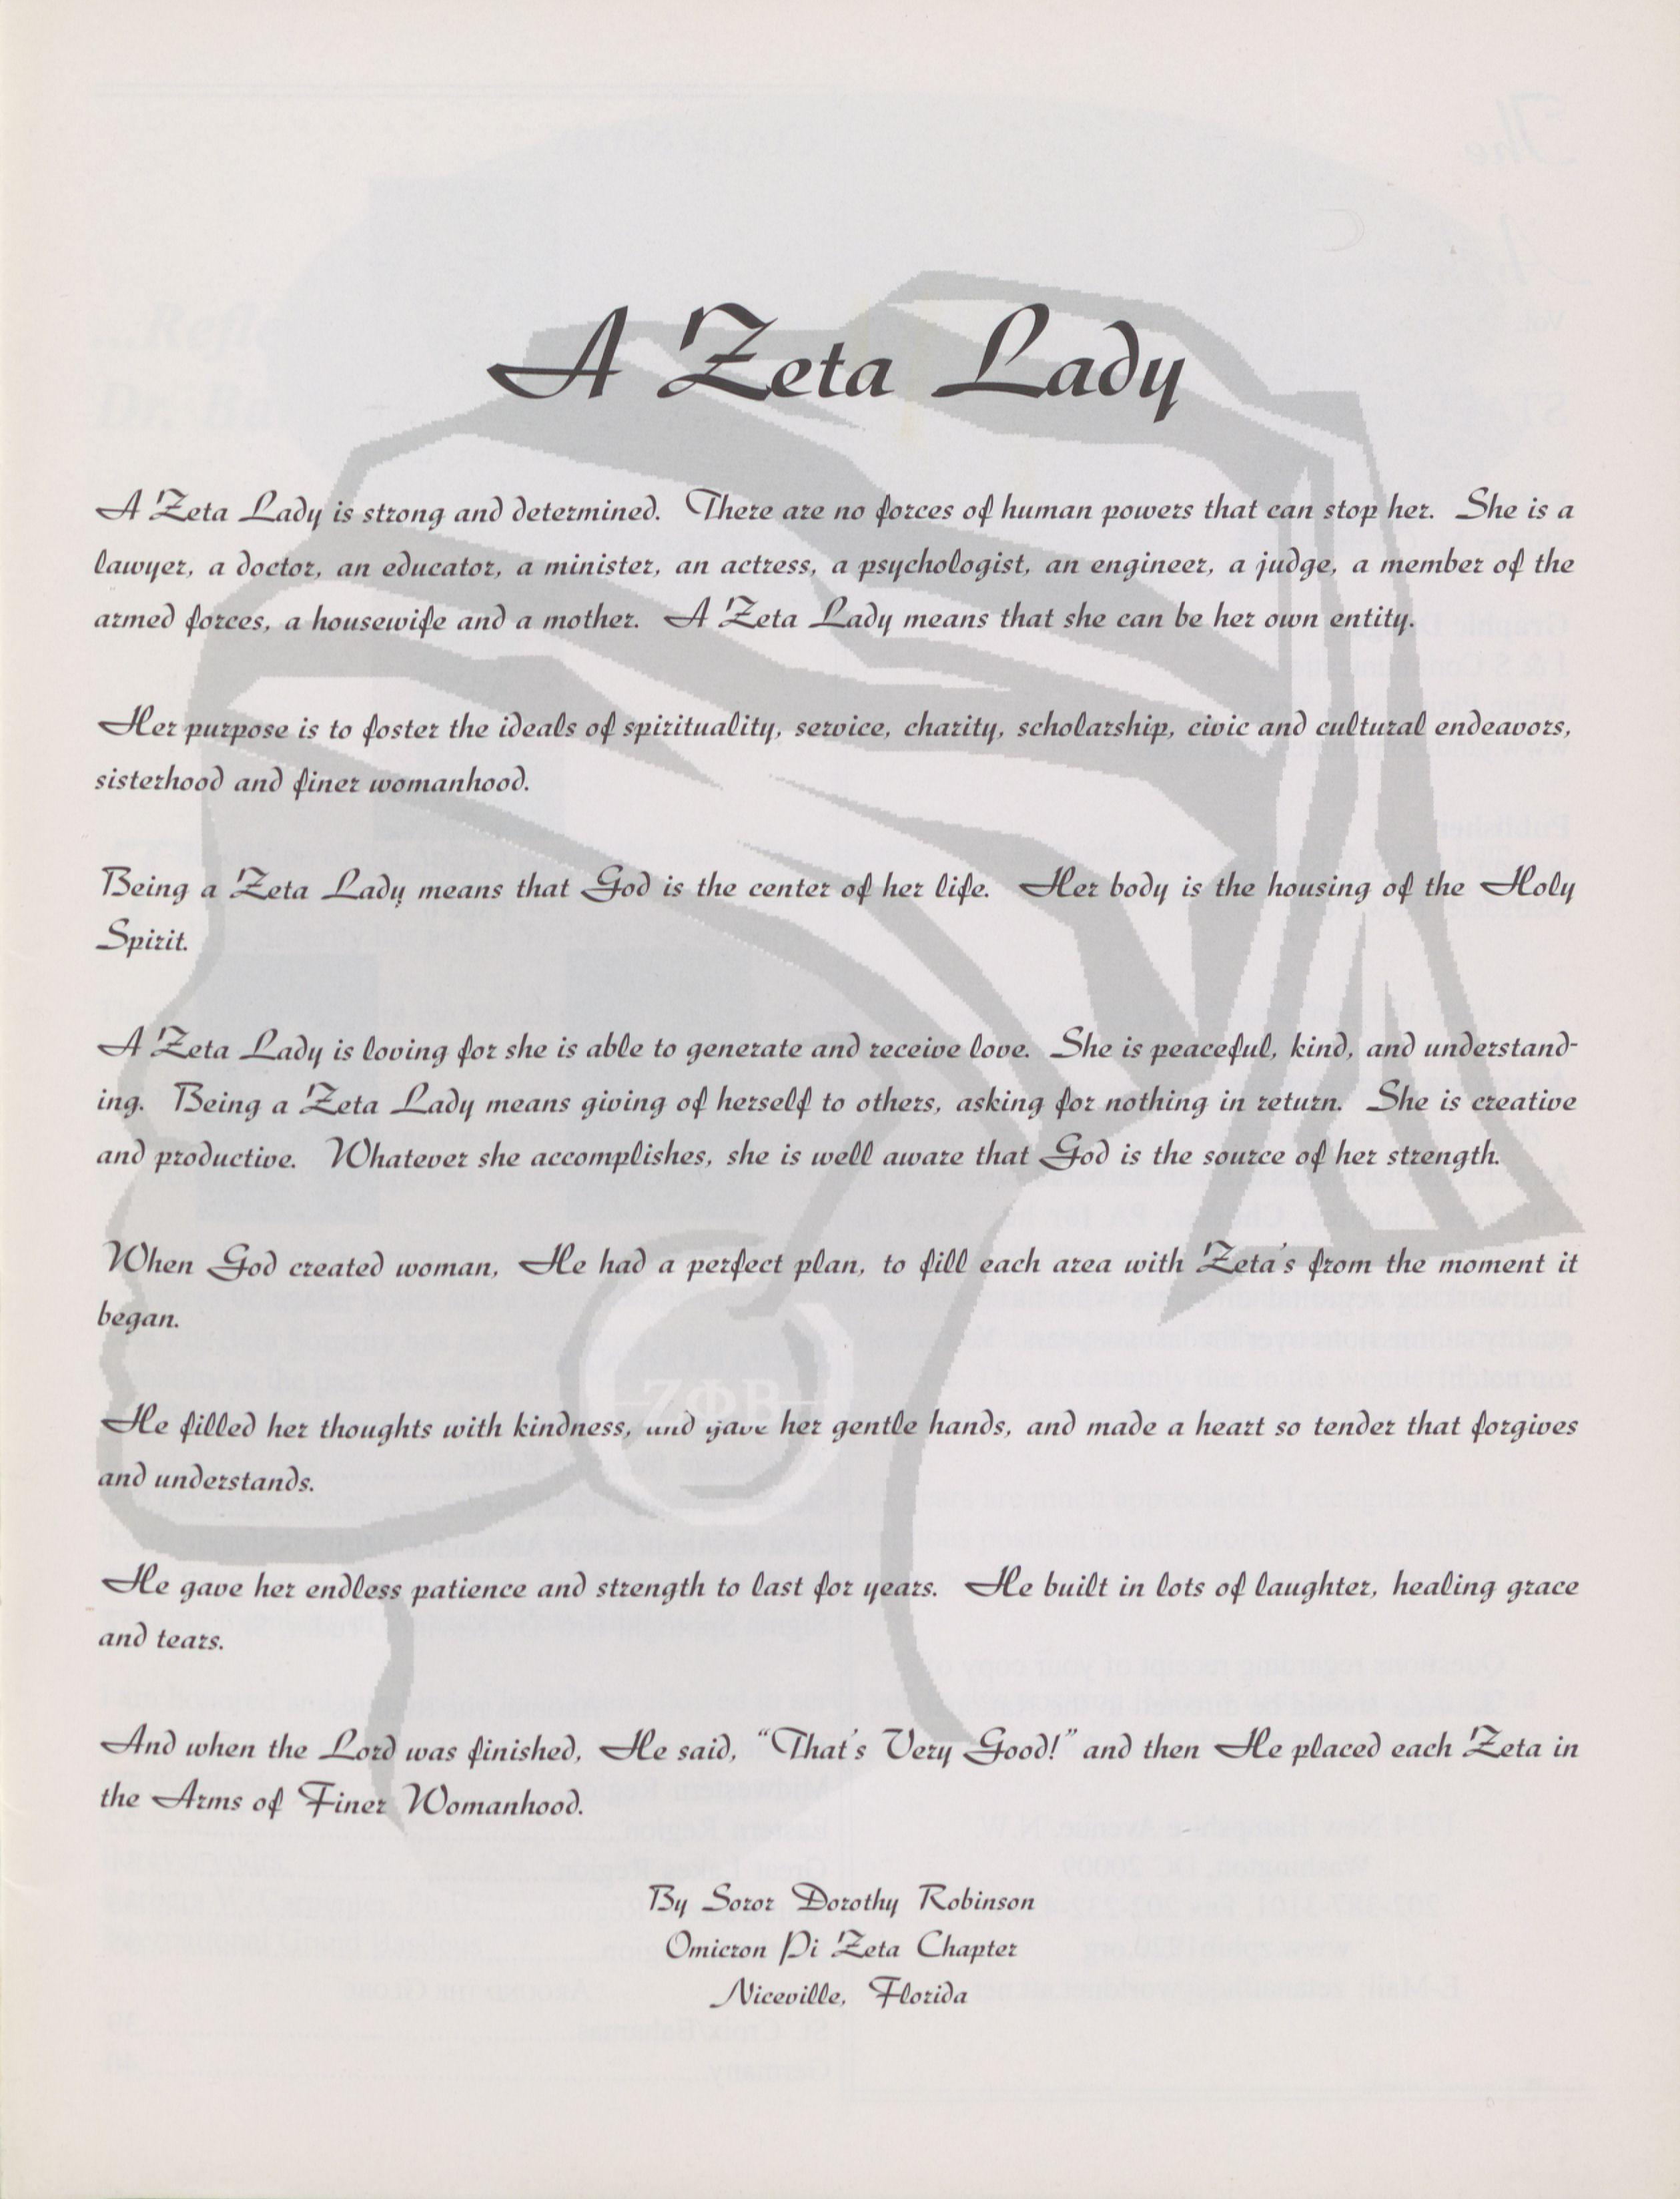 A Zeta Lady
A Zeta Lady is strong and determined. There are no forces of human powers that can stop her. She is a
lawyer, a doctor, an educator, a minister, an actress, a psychologist, an engineer, a judge, a member of the
armed forces, a housewife and a mother. A Zeta Lady means that she can be her own entity.
Her purpose is to foster the ideals of spirituality, service, charity, scholarship, civic and cultural endeavors,
sisterhood and finer womanhood.
Being a Zeta Lady means that God is the center of her life. Her body is the housing of the Holy
Spirit.
A Zeta Lady is loving for she is able to generate and receive love. She is peaceful, kind, and understand-
ing. Being a Zeta Lady means giving of herself to others, asking for nothing in return. She is creative
and productive. Whatever she accomplishes, she is well aware that God is the source of her strength.
When God created woman, He had a perfect plan, to fill each area with Zeta's from the moment it
began.
ΖΦΒ
He filled her thoughts with kindness, and gave her gentle hands, and made a heart so tender that forgives
and understands.
He gave her endless patience and strength to last for years. He built in lots of laughter, healing grace
and tears.
And when the Lord was finished, He said, "That's Very Good!" and then He placed each Zeta in
the Arms of Finer Womanhood.
By Soror Dorothy Robinson
Omicron Pi Zeta Chapter
Niceville, Florida